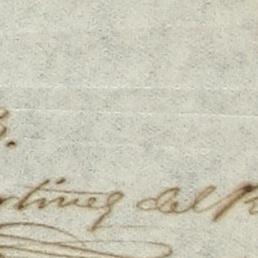 rtinez del R